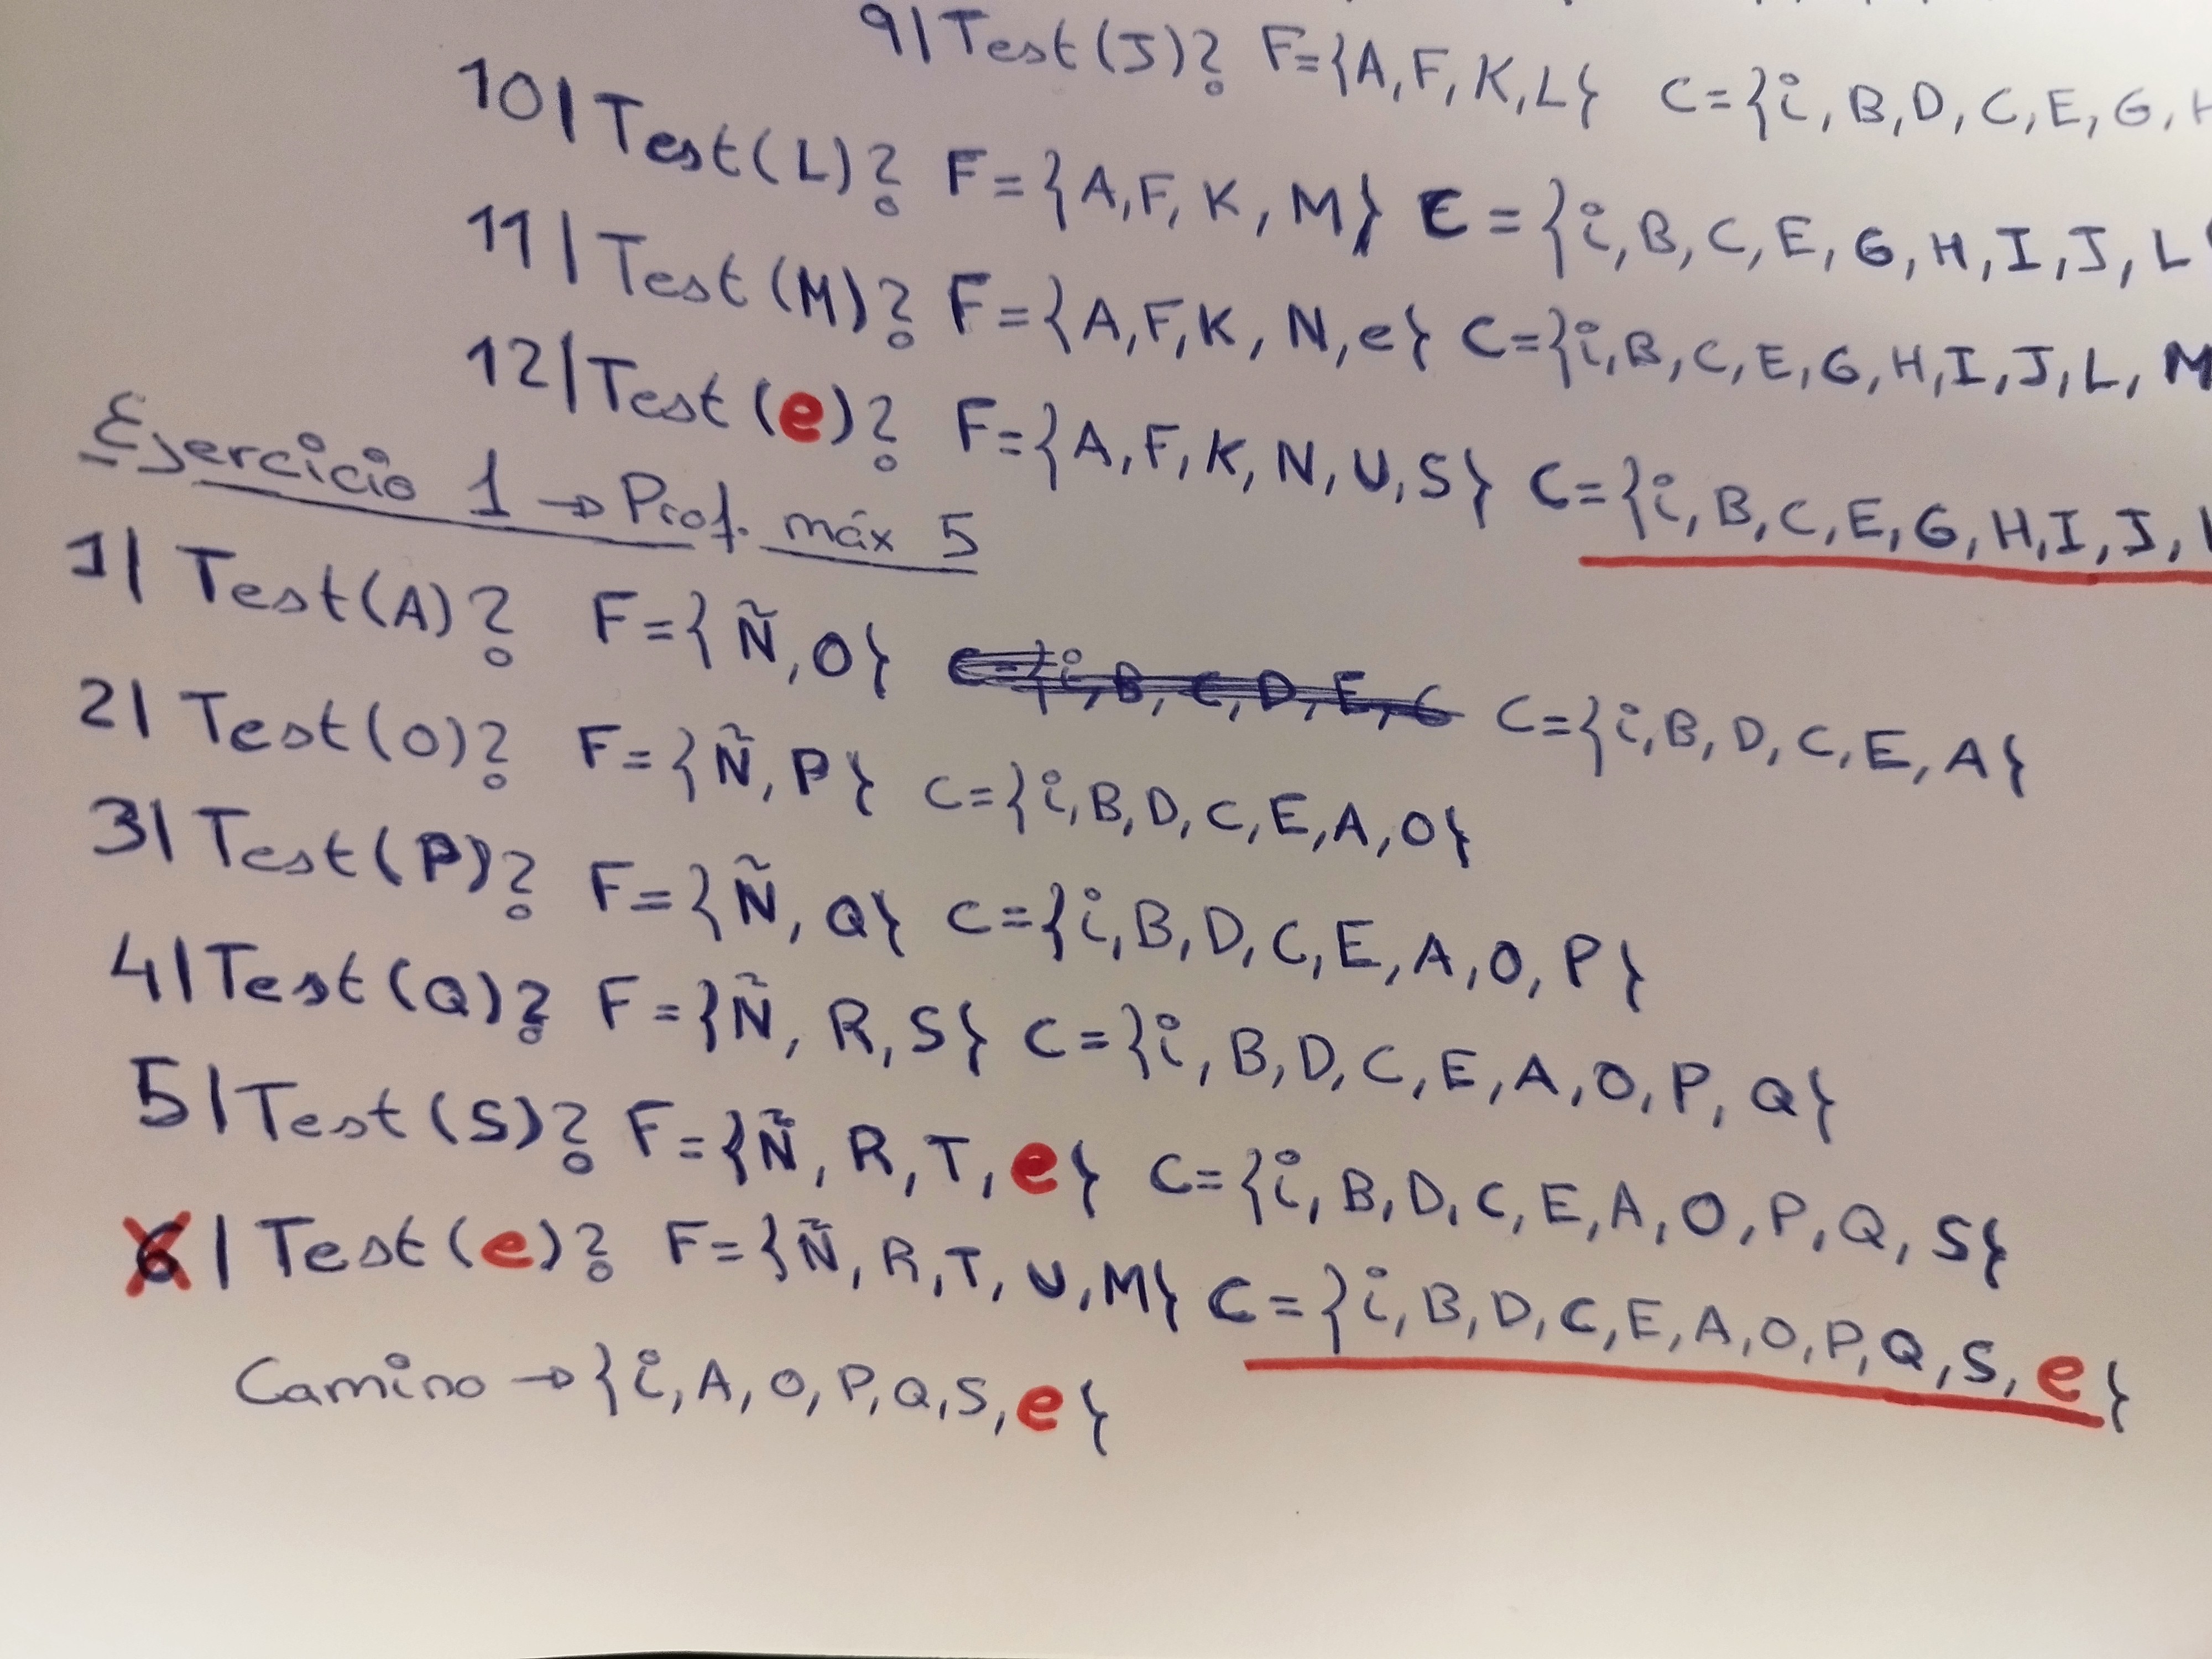 9| Test(J)? F={A,F,K,L} C={i,B,D,C,E,G,H
10| Test(L)? F={A,F,K,M} C={i,B,C,E,G,H,I,J,L
11| Test(M)? F={A,F,K,N,e} C={i,B,C,E,G,H,I,J,L,M
12| Test(e)? F={A,F,K,N,U,S} C={i,B,C,E,G,H,I,J,
Ejercicio 1 → Prof. máx 5
1| Test(A)? F={Ñ,O} C={i,B,C,D,E,G C={i,B,D,C,E,A}
2| Test(O)? F={Ñ,P} C={i,B,D,C,E,A,O}
3| Test(P)? F={Ñ,Q} C={i,B,D,C,E,A,O,P}
4| Test(Q)? F={Ñ,R,S} C={i,B,D,C,E,A,O,P,Q}
5| Test(S)? F={Ñ,R,T,e} C={i,B,D,C,E,A,O,P,Q,S}
6| Test(e)? F={Ñ,R,T,U,M} C={i,B,D,C,E,A,O,P,Q,S,e}
Camino → {i,A,O,P,Q,S,e}